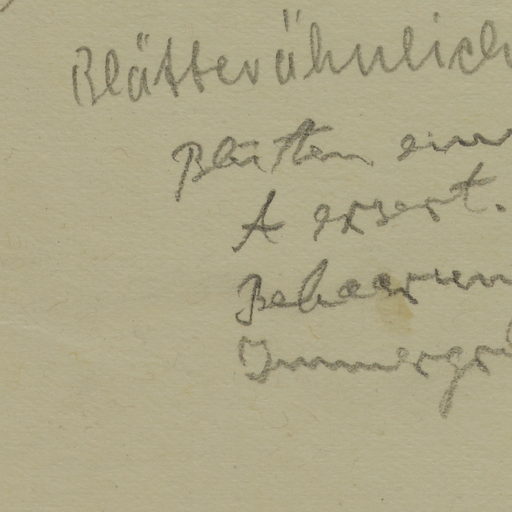 Blätter ähnlich
Blüten ein
A exsert.
Behaarun
Immergrü